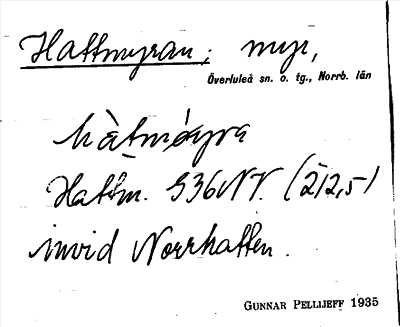 Hattmyran; myr,
Överluleå sn. o. tg., Norrb. län
hàtmóyra
Hattm. S36NV. (212,5)
invid Norrhatten.
GUNNAR PELLIJEFF 1935